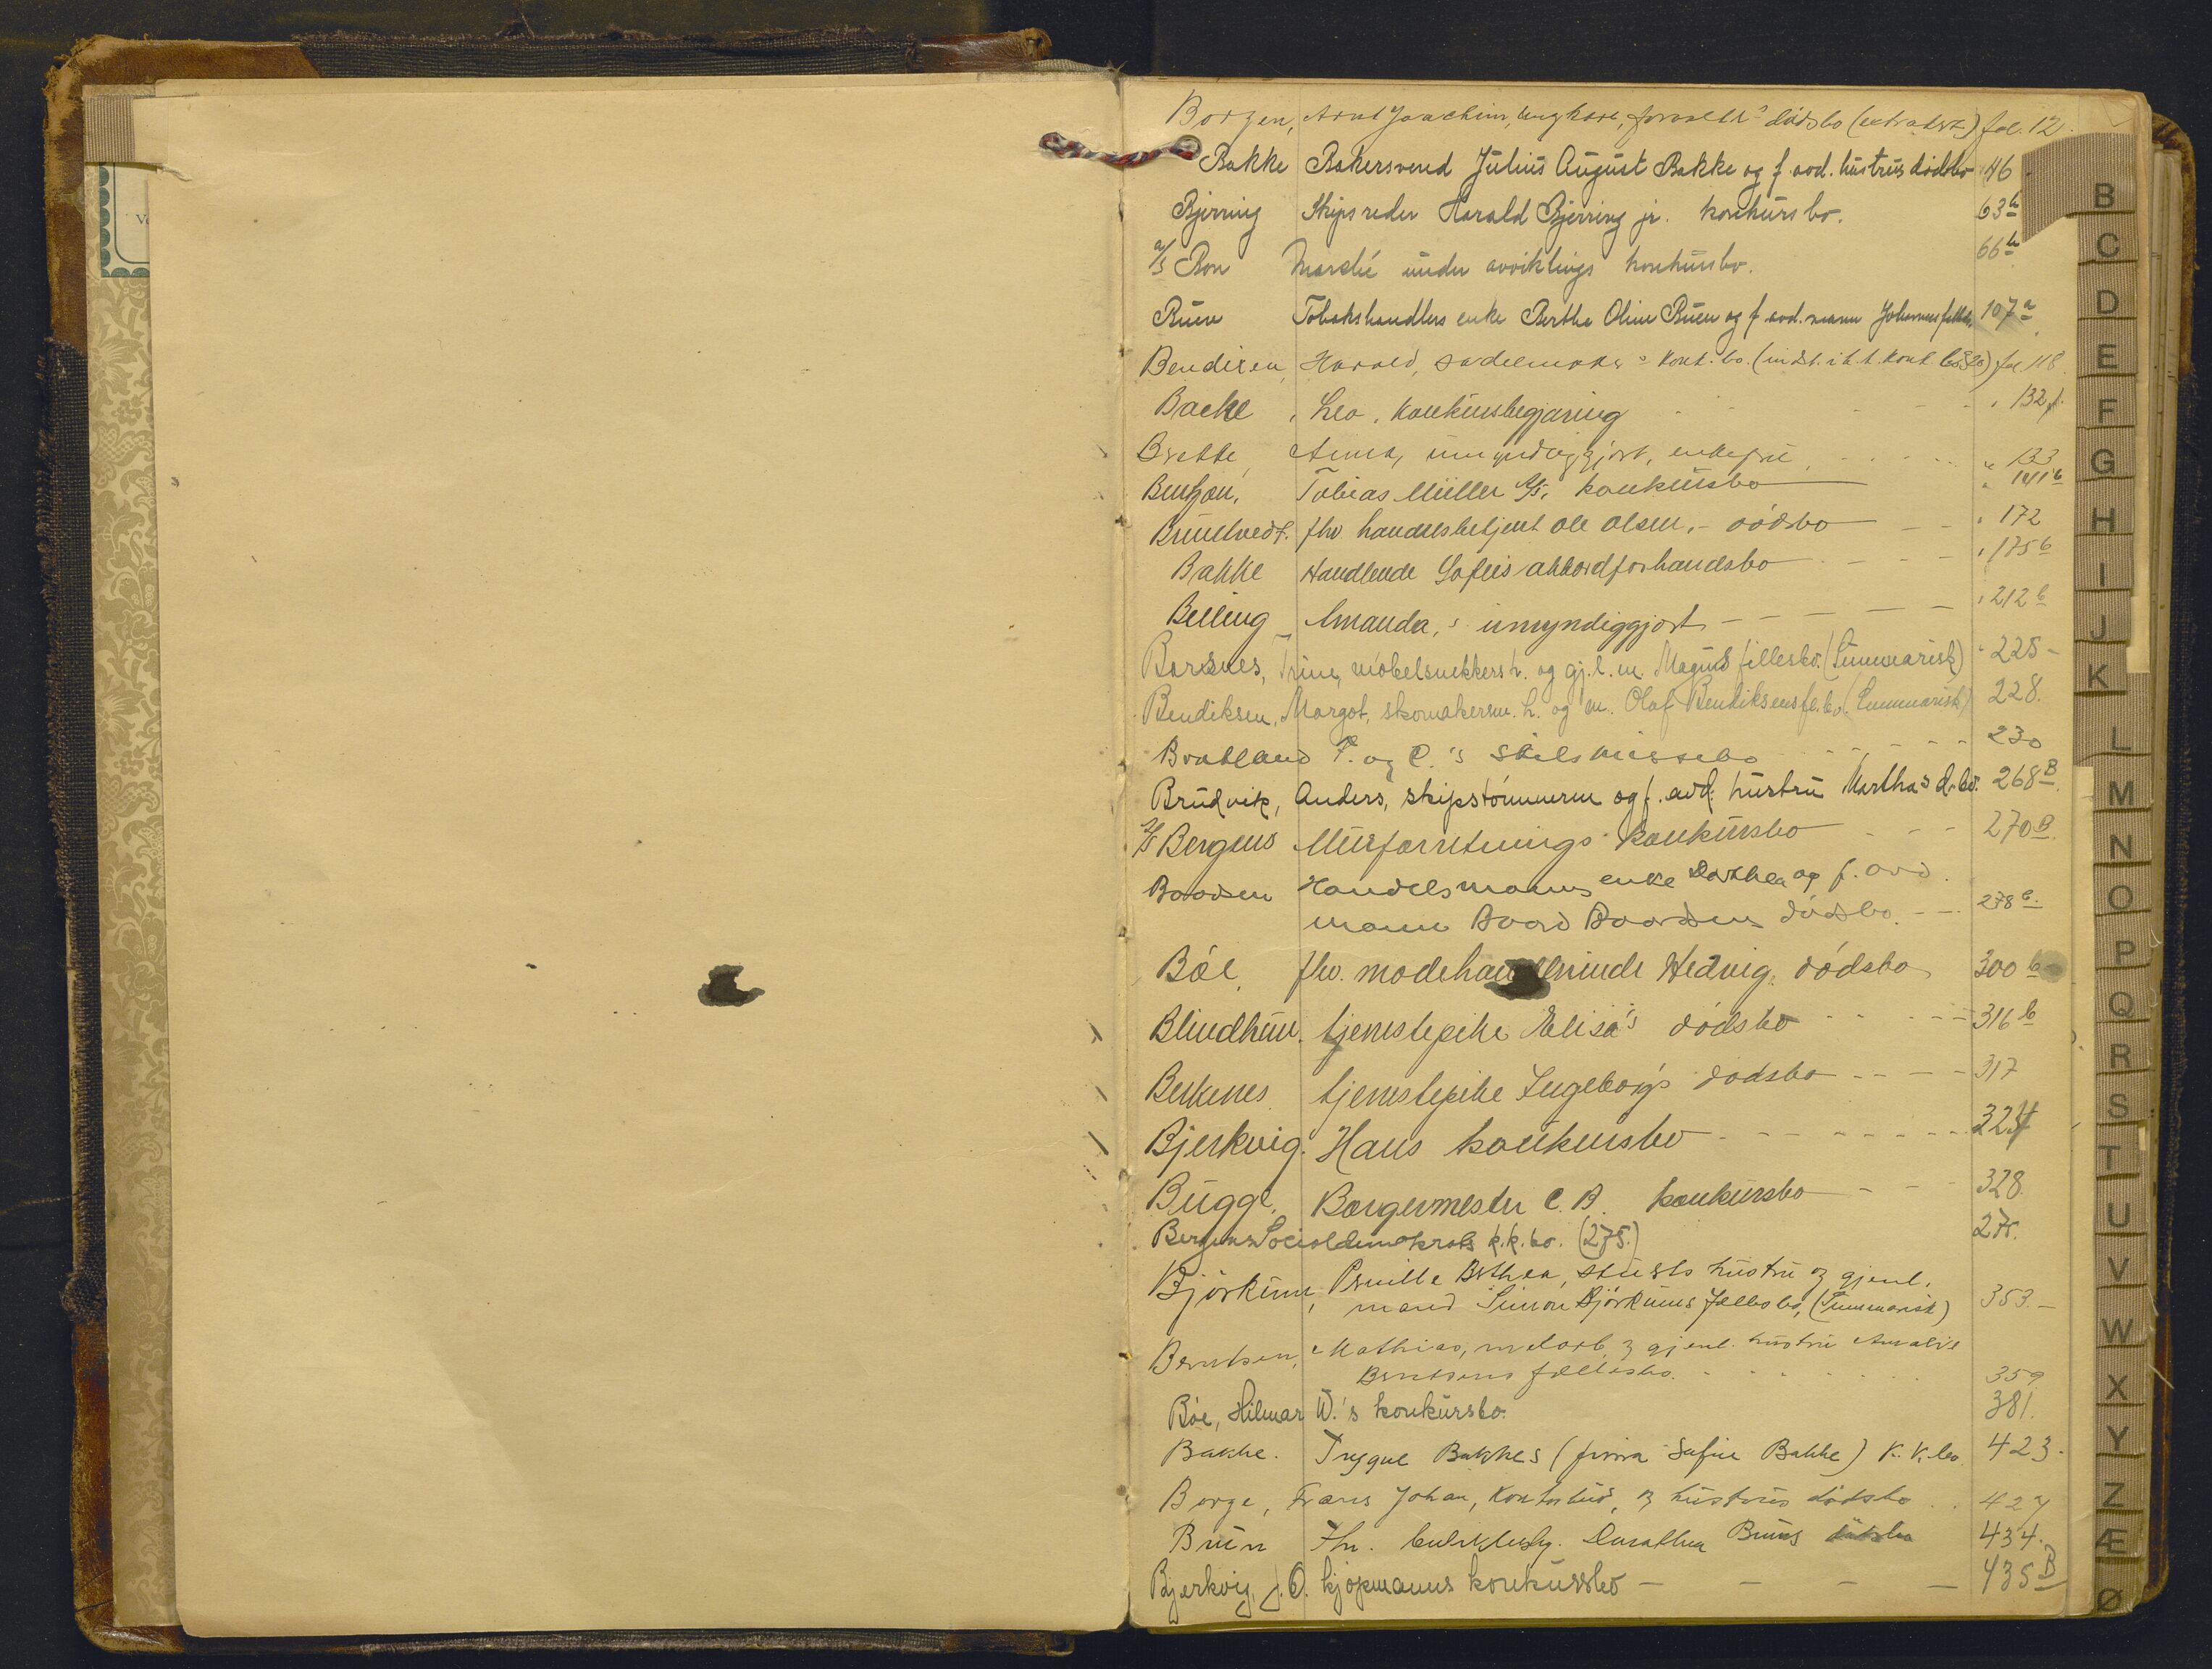 Borgen, Arnt Joachim, ungkarl, dødsbo (ekstrakt) fol. 12.
Bakke Bakersvend Julius August Bakke og f. avd. hustrus dødsbo 46.
Bjerring Skipsreder Harald Bjerring jr. konkursbo. 63 b
a/s Bon Marché under avviklings konkursbo. 66 b
Buen Tobakshandlers enke Berthe Oline Buen og f. avd. mann Johannes fællesb. 107 a
Bendixen, Harald, sadelmaker s konk. bo. fol 118.
Backe, Leo, konkursbegjæring " 132
Brekke, Anna, umyndiggjort, enkefru " 133
Bentzon, Tobias Müller A/S, konkursbo " 141 b
Brundtvedt. fhv. handelsbetjent Ole Olsen, - dødsbo " 172
Bakke Handlende Sofies akkordforhandsbo " 175 b
Belling Amanda, s umyndiggjort " 212 b
Barsnes, Trine, møbelsnekkers h. og gj. l. m. Magnus fellesbo. (Summarisk) " 225 -
Bendiksen, Margot, skomakersv. h. og m. Olaf Bendiksens fl. bo. (Summarisk) 228.
Bratland P. og C.'s skilsmissebo 230
Brudvik, Anders, skipstømmerm og f. avd. hustru Marthas d. bo. 268 B.
A/S Bergens Murforretnings konkursbo 270 B.
Baardsen Handelsmanns enke Dorthea og f. avd.
mann Baard Baardsens dødsbo. 278 b.
Bøe, fhv. modehandlerinde Hedvig, dødsbo 300 b
Blindheim. tjenestepike Elisa's dødsbo 316 b
Berkenes tjenestepike Ingeborg's dødsbo 317
Bjerkvig. Hans konkursbo 324
Bugge, Borgermester C. B. konkursbo 328.
Bergens Socialdemokrats k.k. bo. (275.) 275.
Bjørkum, Pernille Berthea, stuerts hustru og gjenl.
mand Simon Bjørkums fællesbo, (Summarisk) 353. -
Berntsen, Mathias, og gjenl. hustru Amalie
Berntsens fællesbo. 359
Bøe, Hilmar W.'s konkursbo. 381.
Bakke. Trygve Bakkes (firma Sofie Bakke) K. K. bo. 423.
Borge, Frans Johan, Kontorbud, og hustrus dødsbo 427
Bruun Fhr. Dorothea Bruuns dødsbo 434.
Bjerkvig, J. O. kjøpmanns konkursbo 435 B
B
C
D
E
F
G
H
I
J
K
L
M
N
O
P
Q
R
S
T
U
V
W
X
Y
Z
Æ
Ø